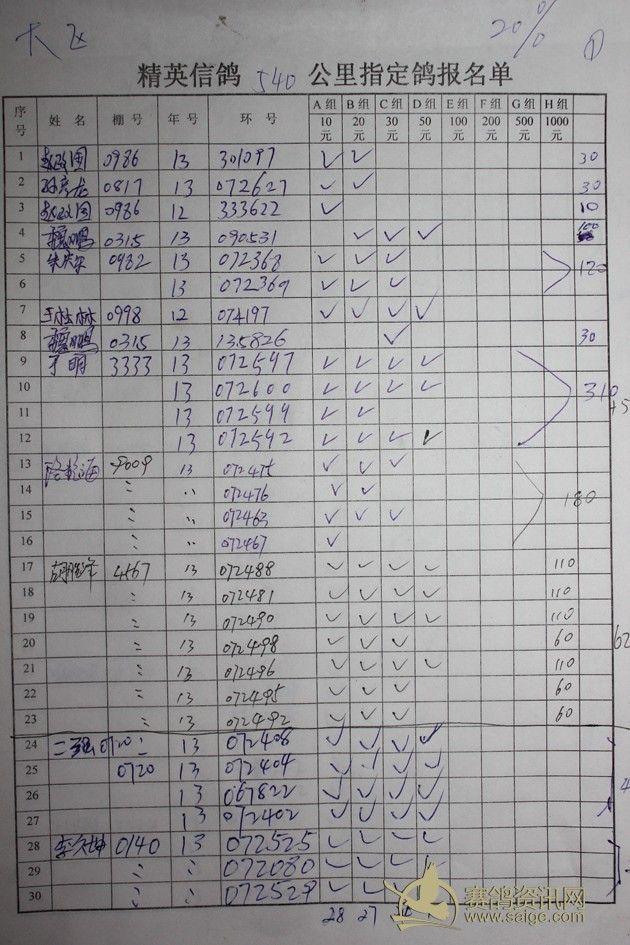 大飞 20% ①
精英信鸽 540 公里指定鸽报名单
序号 姓名 棚号 年号 环号 A组10元 B组20元 C组30元 D组50元 E组100元 F组200元 G组500元 H组1000元
1 赵政国 0986 13 301097 ✓ ✓ 30
2 0817 13 072627 ✓ ✓ 30
3 赵政国 0986 12 333622 ✓ 10
4 0315 13 090531 ✓ ✓ ✓ 100
5 0982 13 072368 ✓ ✓ ✓ 120
6 13 072369 ✓ ✓ ✓
7 王桂林 0998 12 074197 ✓ ✓ ✓ ✓
8 0315 13 135826 ✓ 30
9 于明 3333 13 072597 ✓ ✓ ✓ ✓
10 13 072600 ✓ ✓ ✓ ✓ 310
11 13 072599 ✓ ✓
12 13 072592 ✓ ✓ ✓ ✓
13 9009 13 072475 ✓ ✓ ✓
14 〃 〃 072476 ✓ ✓ 180
15 〃 〃 072463 ✓ ✓ ✓
16 〃 〃 072467 ✓
17 4567 13 072488 ✓ ✓ ✓ ✓ 110
18 〃 13 072481 ✓ ✓ ✓ ✓ 110
19 〃 13 072490 ✓ ✓ ✓ ✓ 110
20 〃 13 072498 ✓ ✓ ✓ 60
21 〃 13 072496 ✓ ✓ ✓ ✓ 110
22 〃 13 072495 ✓ ✓ ✓ 60
23 〃 13 072492 ✓ ✓ ✓ 60
24 0720 13 072408 ✓ ✓ ✓ ✓
25 0720 13 072404 ✓ ✓ ✓ ✓
26 13 067822 ✓ ✓ ✓ ✓
27 13 072402 ✓ ✓ ✓ ✓
28 李久坤 0140 13 072525 ✓ ✓ ✓ ✓
29 〃 〃 072080 ✓ ✓ ✓ ✓
30 〃 〃 072529 ✓ ✓
28 27
赛鸽资讯网
www.saige.com